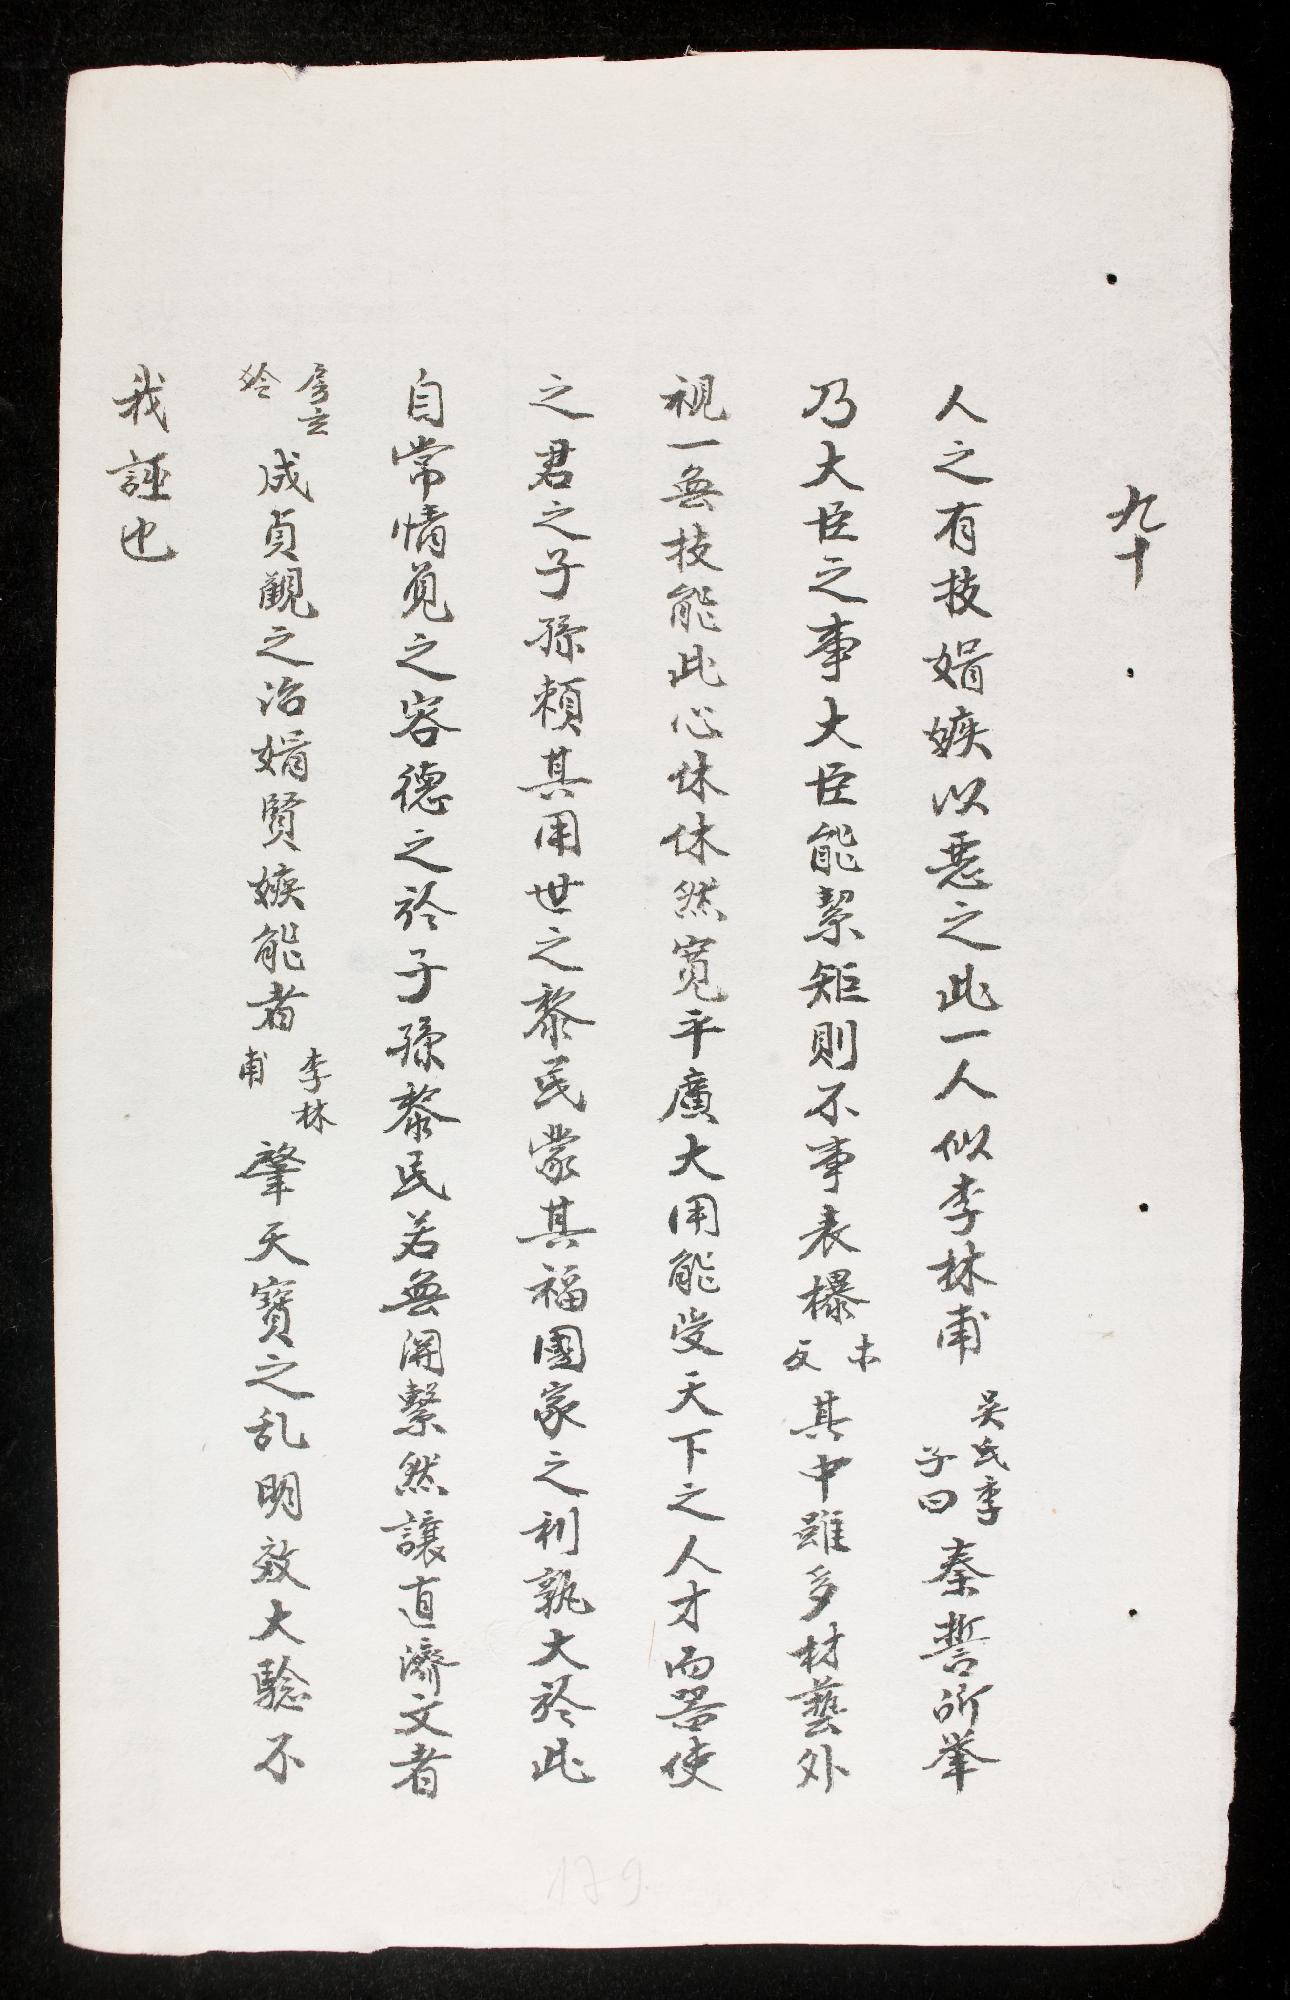 九十
人之有技媢嫉以惡之此一人似李林甫吳氏季子曰秦誓所举
乃大臣之事大臣能絜矩則不事表襮木反其中雖多材藝外
視一無技能此心休休然寬平廣大用能受天下之人才而器使
之君之子孫頼其用世之黎民蒙其福國家之利孰大於此
自常情覓之容德之於子孫黎民若無関繫然讓直濟文者
房玄齡成貞觀之治媢賢嫉能者李林甫肇天寶之乱明效大驗不
我誣也
129